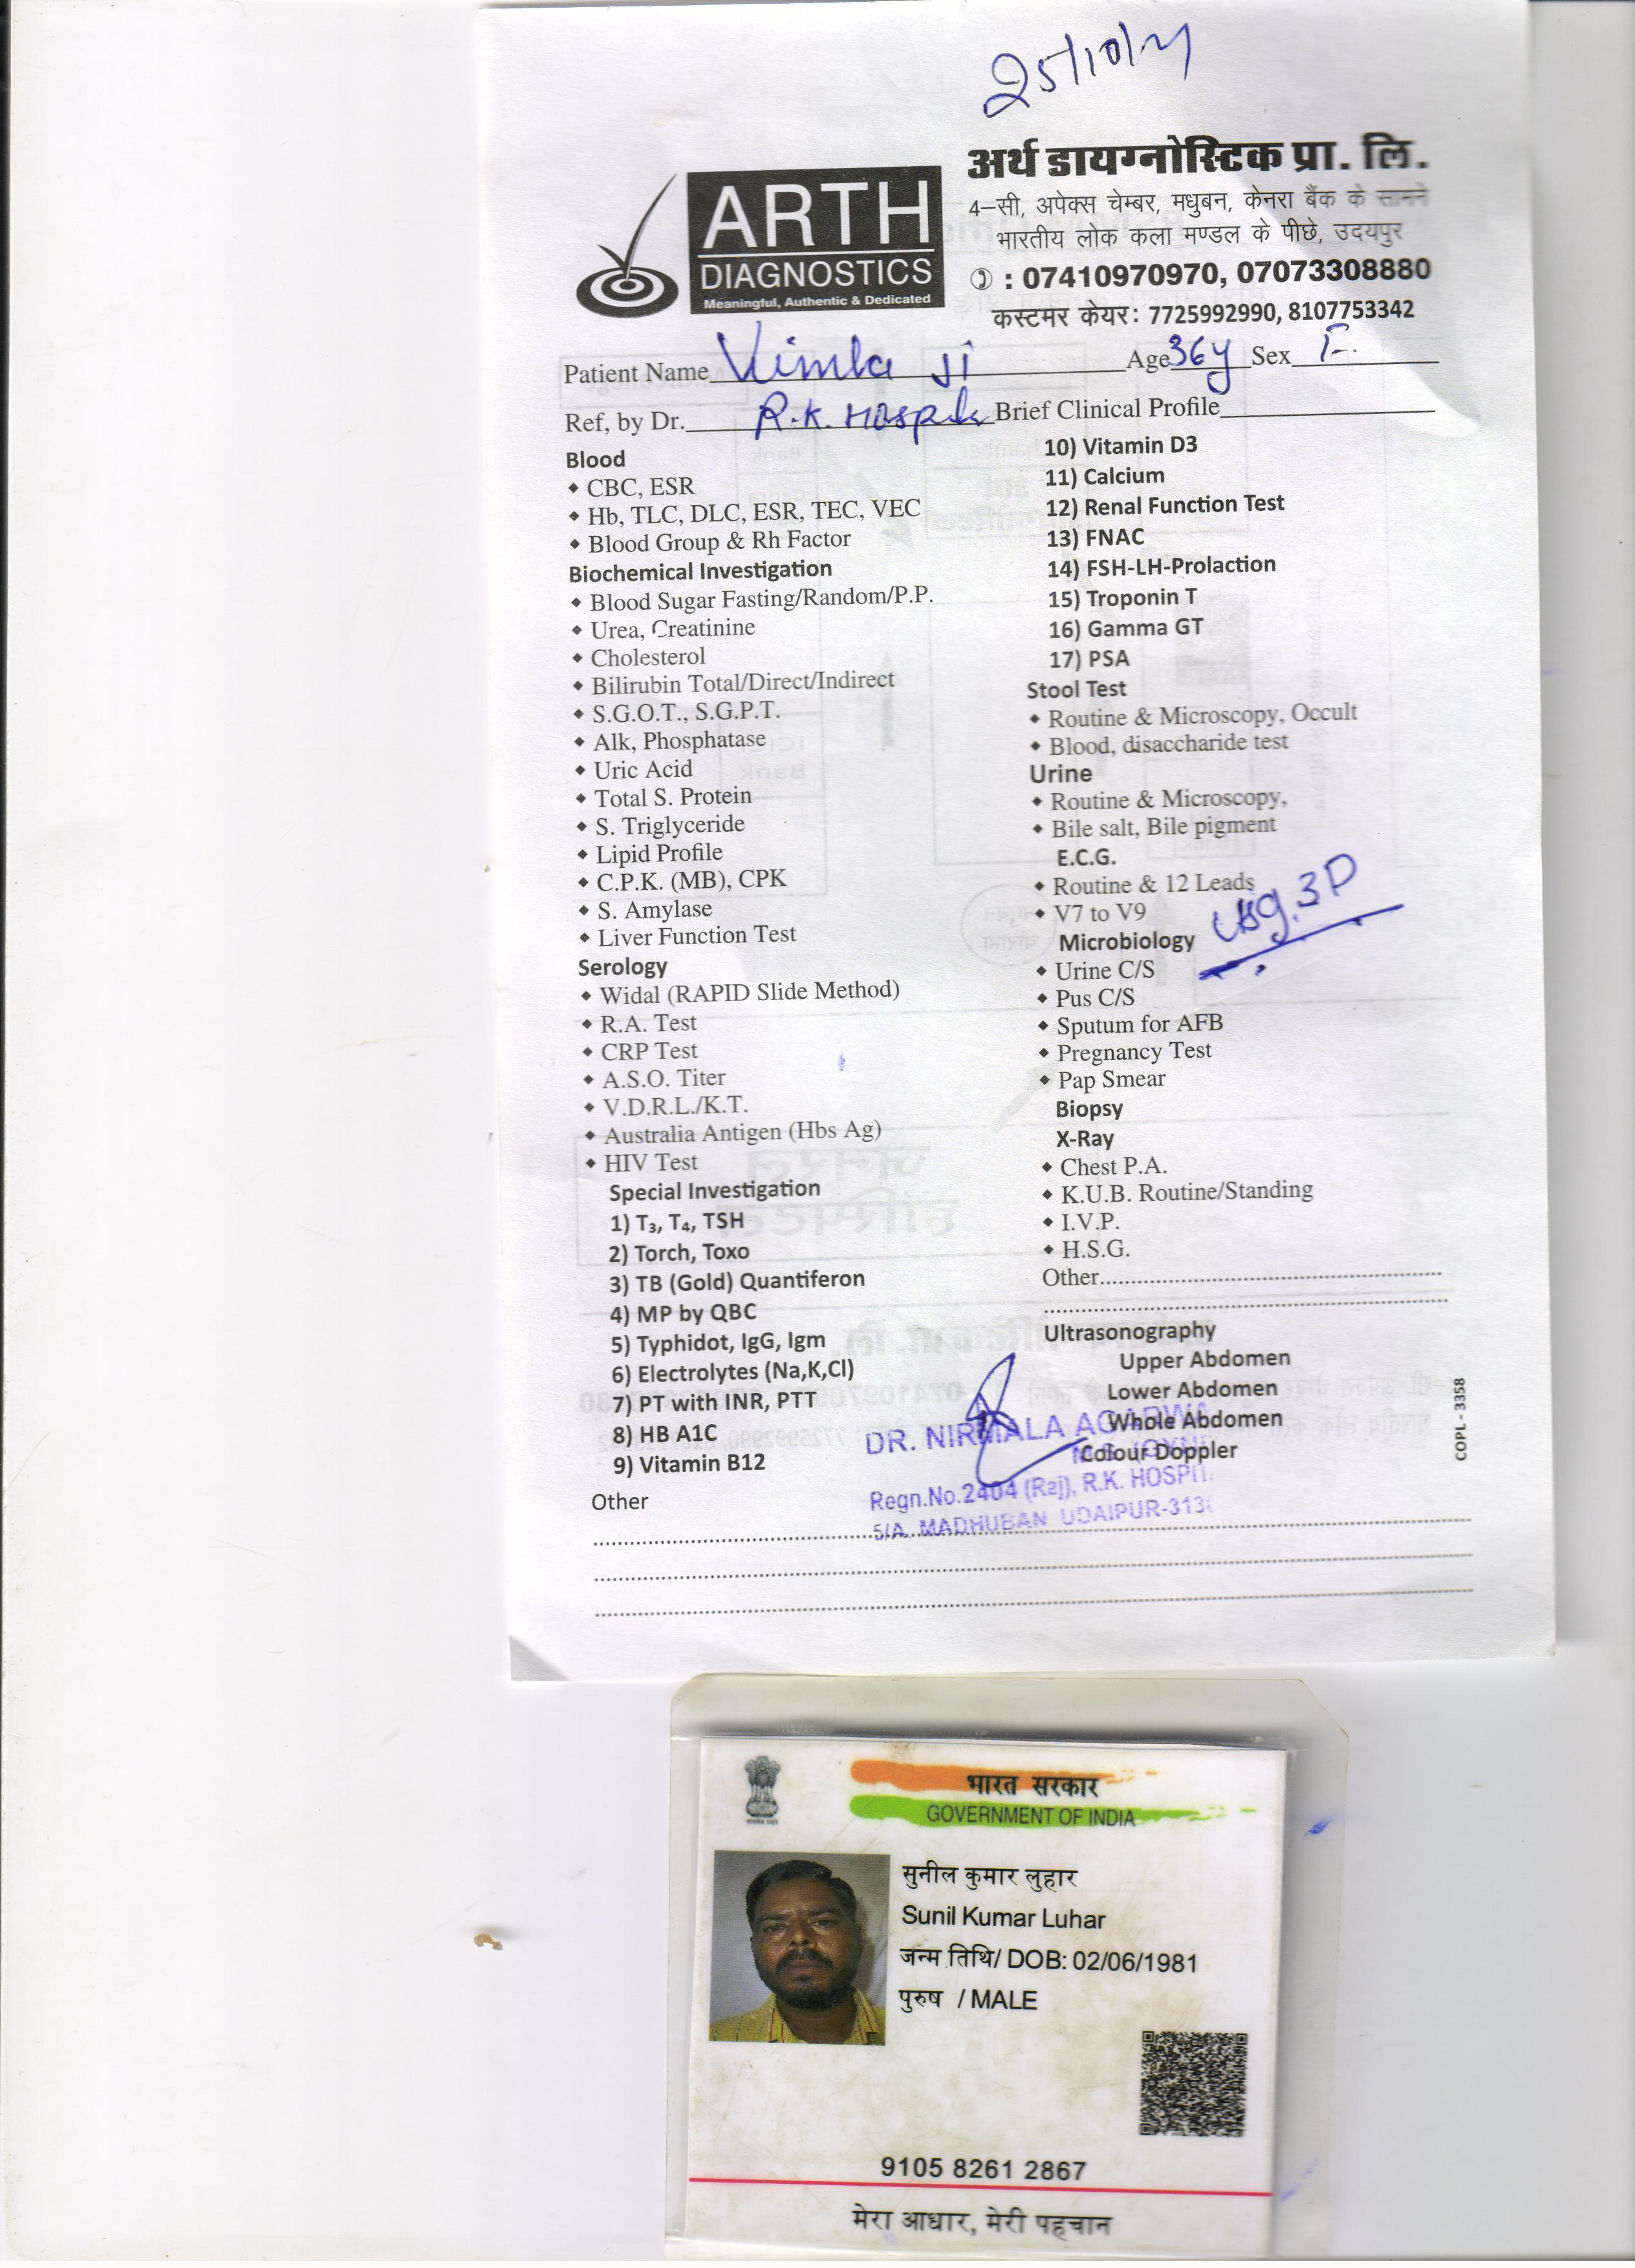 25/10/21
अर्थ डायग्नोस्टिक प्रा. लि.
4–सी, अपेक्स चेम्बर, मधुबन, केनरा बैंक के सामने
भारतीय लोक कला मण्डल के पीछे, उदयपुर
: 07410970970, 07073308880
कस्टमर केयर: 7725992990, 8107753342
ARTH
DIAGNOSTICS
Meaningful, Authentic & Dedicated
Patient Name Vimla Ji Age 36y Sex F.
Ref, by Dr. R.K. Hospital Brief Clinical Profile
Blood
◆ CBC, ESR
◆ Hb, TLC, DLC, ESR, TEC, VEC
◆ Blood Group & Rh Factor
Biochemical Investigation
◆ Blood Sugar Fasting/Random/P.P.
◆ Urea, Creatinine
◆ Cholesterol
◆ Bilirubin Total/Direct/Indirect
◆ S.G.O.T., S.G.P.T.
◆ Alk, Phosphatase
◆ Uric Acid
◆ Total S. Protein
◆ S. Triglyceride
◆ Lipid Profile
◆ C.P.K. (MB), CPK
◆ S. Amylase
◆ Liver Function Test
Serology
◆ Widal (RAPID Slide Method)
◆ R.A. Test
◆ CRP Test
◆ A.S.O. Titer
◆ V.D.R.L./K.T.
◆ Australia Antigen (Hbs Ag)
◆ HIV Test
Special Investigation
1) T₃, T₄, TSH
2) Torch, Toxo
3) TB (Gold) Quantiferon
4) MP by QBC
5) Typhidot, IgG, Igm
6) Electrolytes (Na,K,Cl)
7) PT with INR, PTT
8) HB A1C
9) Vitamin B12
Other
10) Vitamin D3
11) Calcium
12) Renal Function Test
13) FNAC
14) FSH-LH-Prolaction
15) Troponin T
16) Gamma GT
17) PSA
Stool Test
◆ Routine & Microscopy, Occult
◆ Blood, disaccharide test
Urine
◆ Routine & Microscopy,
◆ Bile salt, Bile pigment
E.C.G.
◆ Routine & 12 Leads
◆ V7 to V9
3D
Microbiology
◆ Urine C/S
◆ Pus C/S
◆ Sputum for AFB
◆ Pregnancy Test
◆ Pap Smear
Biopsy
X-Ray
◆ Chest P.A.
◆ K.U.B. Routine/Standing
◆ I.V.P.
◆ H.S.G.
Other
Ultrasonography
Upper Abdomen
Lower Abdomen
Whole Abdomen
Colour Doppler
COPL - 3358
DR. NIRMALA AGARWA
Regn.No.2404 (Raj), R.K. HOSPIT
5/A, MADHUBAN UDAIPUR-313
भारत सरकार
GOVERNMENT OF INDIA
सुनील कुमार लुहार
Sunil Kumar Luhar
जन्म तिथि/ DOB: 02/06/1981
पुरुष / MALE
9105 8261 2867
मेरा आधार, मेरी पहचान